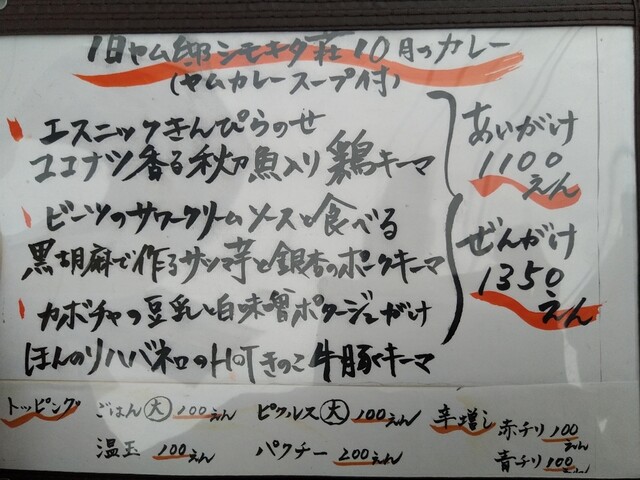 旧ヤム邸シモキタ荘10月のカレー
(ヤムカレースープ付)
エスニックきんぴらのせ
ココナツ香る秋刀魚入り鶏キーマ
ビーツのサワークリームソースと食べる
黒胡麻で作るサツマ芋と銀杏のポークキーマ
カボチャの豆乳と白味噌ポタージュがけ
ほんのりハバネロのHOTきのこ牛豚キーマ
あいがけ
1100えん
ぜんがけ
1350えん
トッピング ごはん大100えん ピクルス大100えん 辛増し 赤チリ100えん
温玉 100えん パクチー 200えん 青チリ100えん